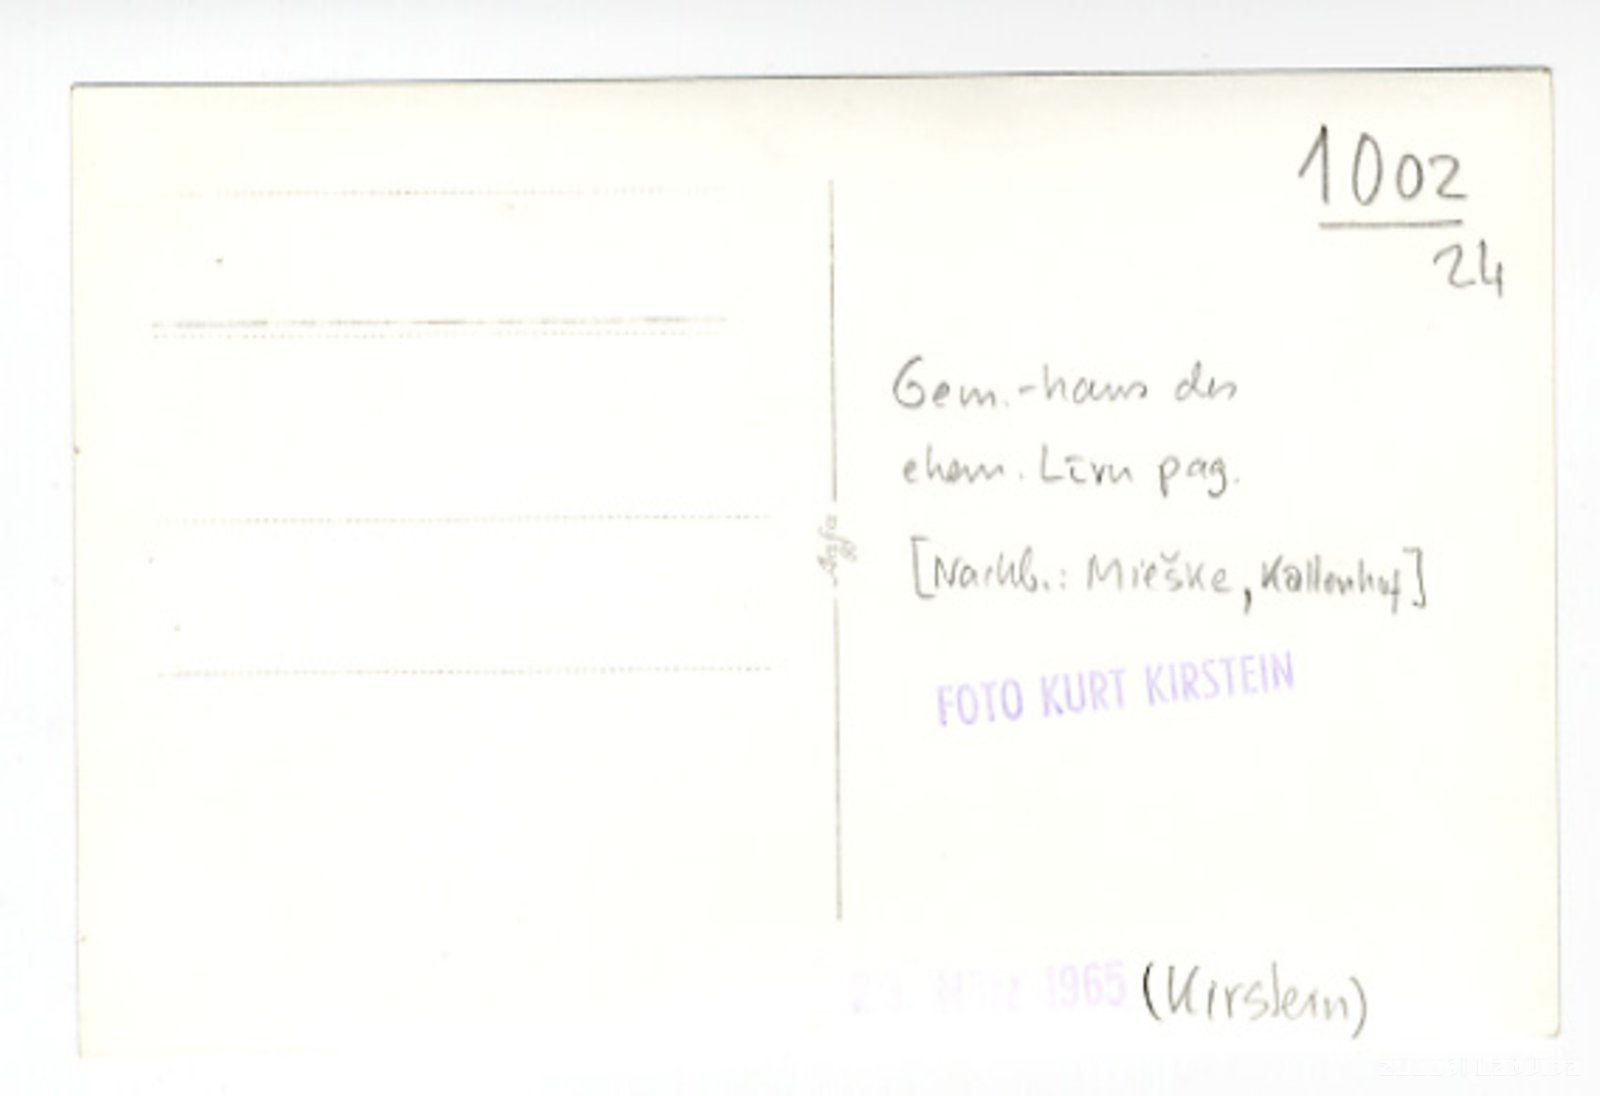 1002
24
Gem.-haus des
ehem. Līvu pag.
[Nachb.: Mieške, Kallenhof]
FOTO KURT KIRSTEIN
Agfa
März 1965 (Kirstein)